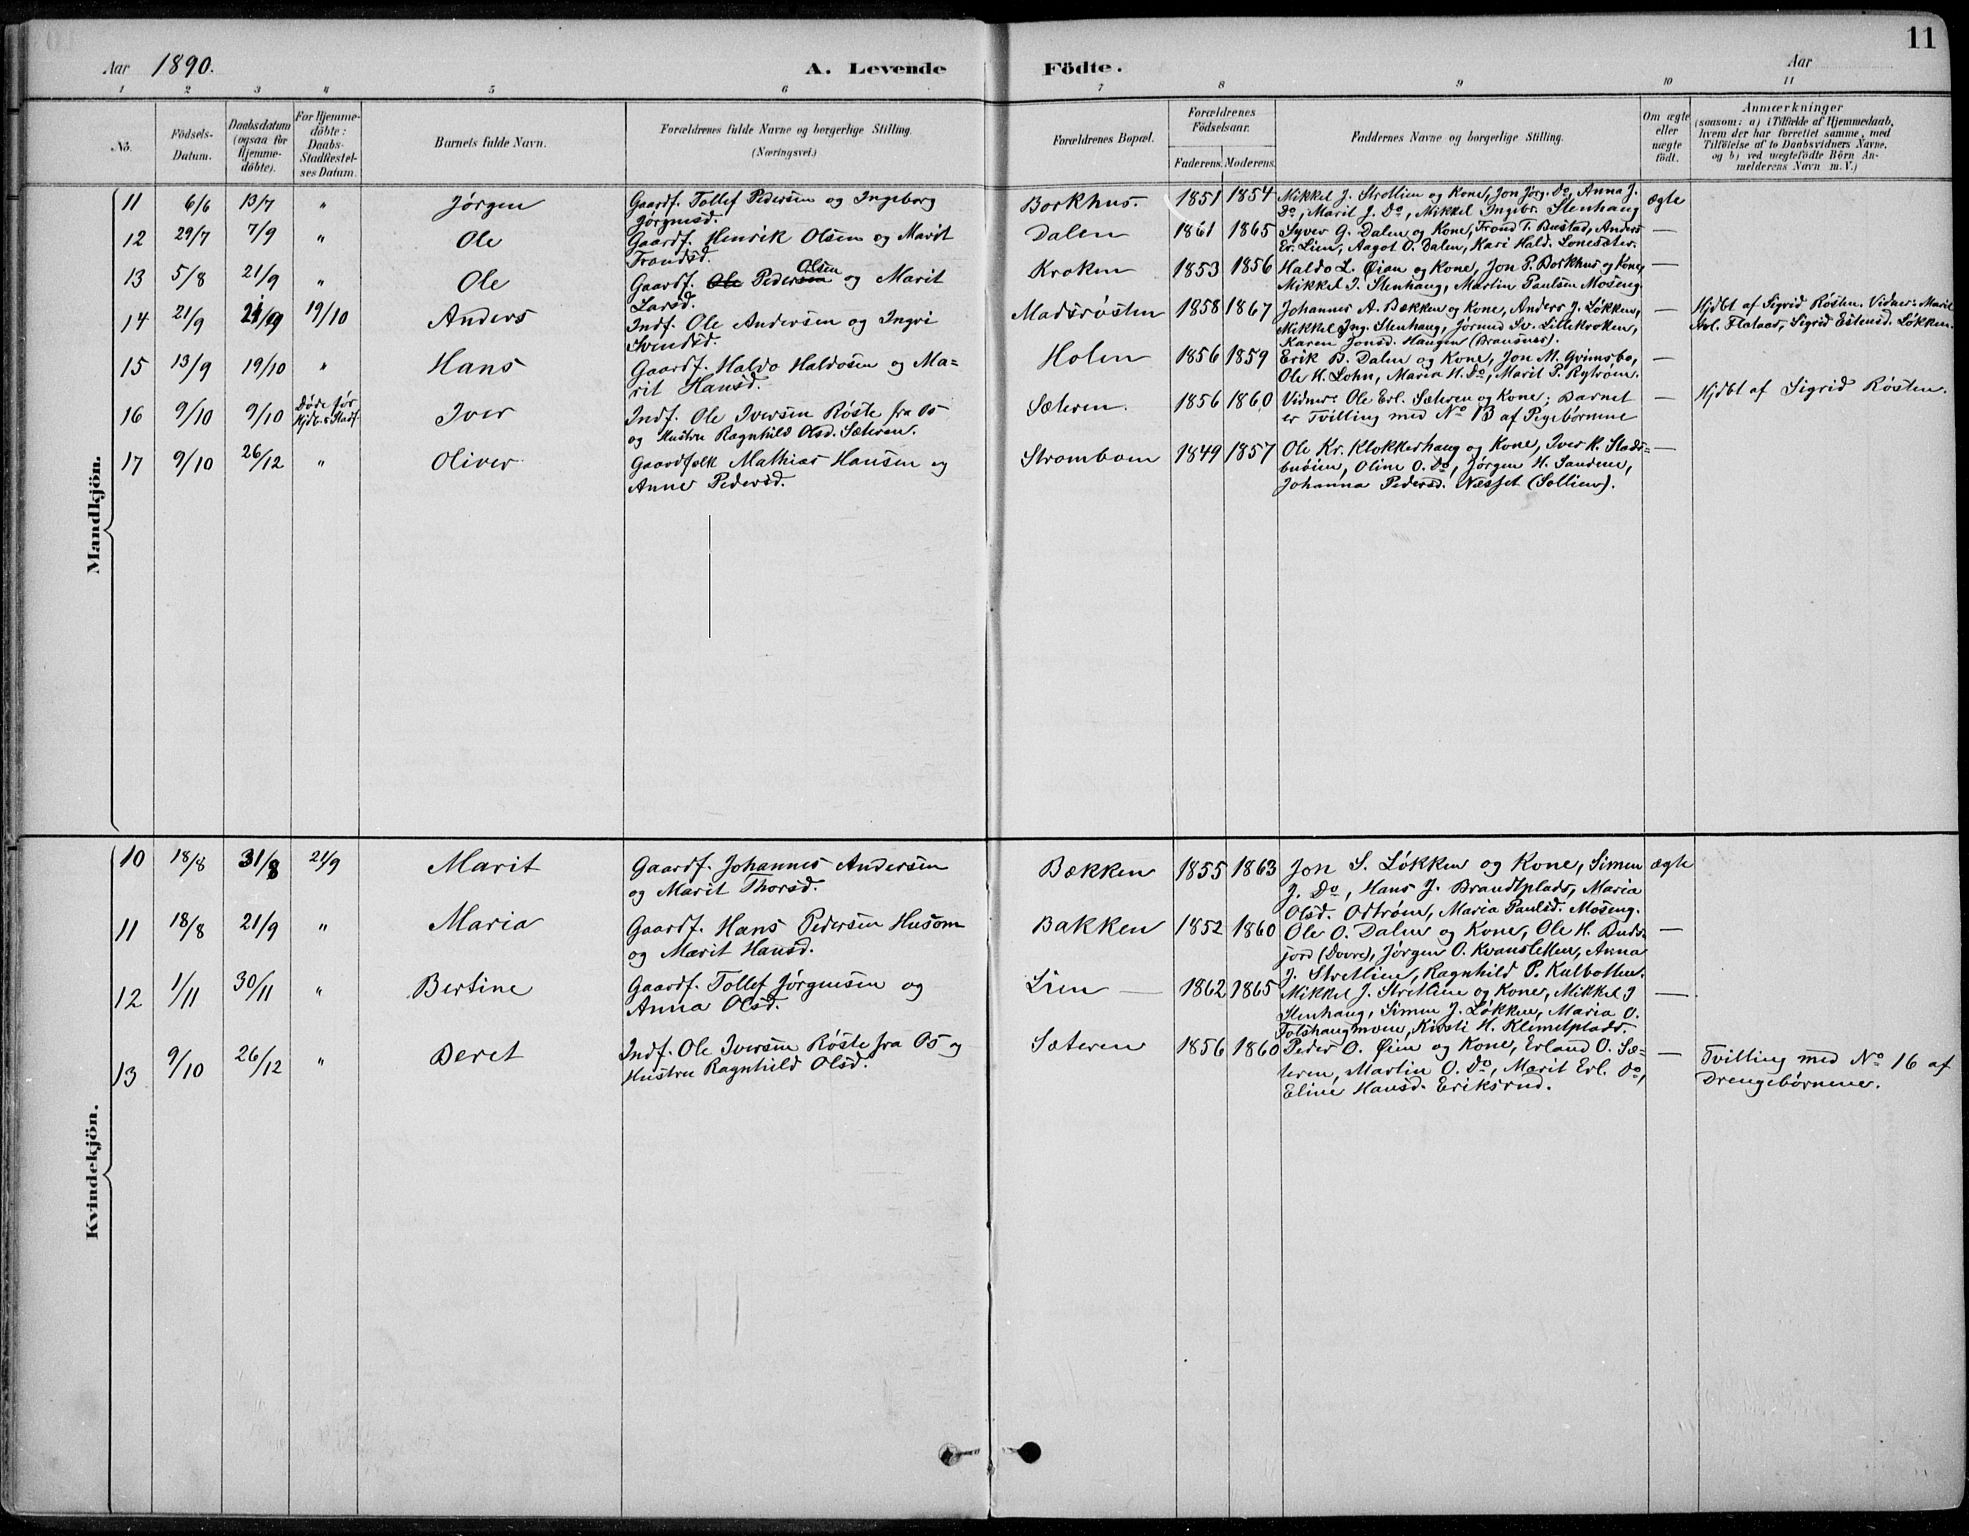 11
Aar 1890.
A. Levende Födte.
Aar
1 2 3 4 5 6 7 8 9 10 11
No.
Födsels-
Datum.
Daabsdatum
(ogsaa for
Hjemme-
döbte).
For Hjemme-
döbte:
Daabs-
Stadfæstel-
ses Datum.
Barnets fulde Navn.
Forældrenes fulde Navne og borgerlige Stilling.
(Næringsvei.)
Forældrenes Bopæl.
Forældrenes
Födselsaar.
Faderens. Moderens.
Faddernes Navne og borgerlige Stilling.
Om ægte
eller
uægte
födt.
Anmærkninger
(saasom: a) i Tilfælde af Hjemmedaab,
hvem der har forrettet samme, med
Tilföielse af to Daabsvidners Navne,
og b) ved uægtefödte Börn An-
melderens Navn m. V.)
Mandkjön.
11 6/6 13/7 " Jørgen
Gaardf. Tollef Pedersen og Ingeborg
Jørgensd.
Borkhus 1851 1854
Mikkel J. Stretlien og Kone, Jon Jørg. Do, Anna J.
Do, Marit J. Do, Mikkel Ingebr. Stenhaug
ægte
12 29/7 7/9 " Ole
Gaardf. Henrik Olsen og Marit
Trondsd.
Dalen 1861 1865
Syver G. Dalen og Kone, Trond T. Bustad, Anders
Er. Lien, Aagot O. Dalen, Kari Hald. Lonesæter.
—
13 5/8 21/9 " Ole
Gaardf. Ole Pedersen Olsen og Marit
Larsd.
Kroken 1853 1856
Haldo L. Øian og Kone, Jon P. Borkhus og Kone,
Mikkel I. Stenhaug, Martin Paulsen Moseng
—
14 21/9 21/9 19/10 Anders
Indf. Ole Andersen og Ingri
Svendsd.
Madsrøsten 1858 1867
Johannes A. Bekken og Kone, Anders J. Løkken,
Mikkel Ing. Stenhaug, Jørund Sv. Lillekroken,
Karen Jonsd. Haugen (Bransnes).
—
Hjdbt af Sigrid Røsten. Vidner: Marit
Flataas, Sigrid Estensd. Løkken.
15 13/9 19/10 " Hans
Gaardf. Haldo Haldosen og Ma-
rit Hansd.
Holen 1856 1859
Erik B. Dalen og Kone, Jon M. Grimsbo,
Ole H. Lohn, Maria H. Do, Marit P. Rytrøen.
—
16 9/10 9/10 Døde før
Hjdb.s Stadf. Iver
Indf. Ole Iversen Røste fra Os
og Hustru Ragnhild Olsd. Sæteren.
Sæteren. 1856 1860
Vidner: Ole Erl. Sæteren og Kone; Barnet
er Tvilling med No 13 af Pigebørnene
—
Hjdbt af Sigrid Røsten.
17 9/10 26/12 " Oliver
Gaardfolk Mathias Hansen og
Anne Pedersd.
Strømboen 1849 1857
Ole Kr. Klokkerhaug og Kone, Iver K. Stads-
buøien, Oline O. Do, Jørgen H. Sandene,
Johanna Pedersd. Næsset (Sollien).
—
Kvindekjön.
10 18/8 31/8 21/9 Marit
Gaardf. Johannes Andersen
og Marit Thorsd.
Bækken 1855 1863
Jon S. Løkken og Kone, Simen
J. Do, Hans J. Brandtplads, Maria
Olsd. Odtrøen, Maria Paulsd. Moseng.
ægte
11 18/8 21/9 " Maria
Gaardf. Hans Pedersen Husom
og Marit Hansd.
Bakken 1852 1860
Ole O. Dalen og Kone, Ole H. Buds-
jord (Dovre), Jørgen O. Kvansletten, Anna
J. Stretlien, Ragnhild P. Kulbotten.
—
12 1/11 30/11 " Bertine
Gaardf. Tollef Jørgensen og
Anna Olsd.
Lien 1862 1865
Mikkel J. Stretlien og Kone, Mikkel J
Stenhaug, Simen J. Løkken, Maria O.
Tolshaugmoen, Kirsti H. Klemetplads.
—
13 9/10 26/12 " Beret
Indf. Ole Iversen Røste fra Os og
Hustru Ragnhild Olsd.
Sæteren 1856 1860
Peder O. Øien og Kone, Erland O. Sæ-
teren, Martin O. Do, Marit Erl. Do,
Eline Hansd. Eriksrud.
—
Tvilling med No 16 af
Drengebørnene.